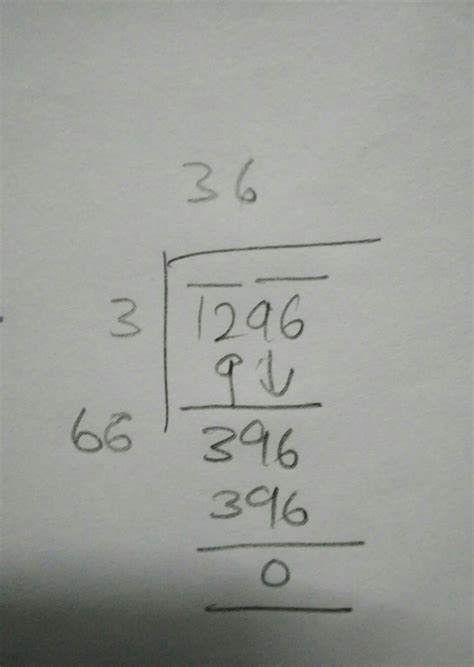 36
3 1296
9↓
66 396
396
0